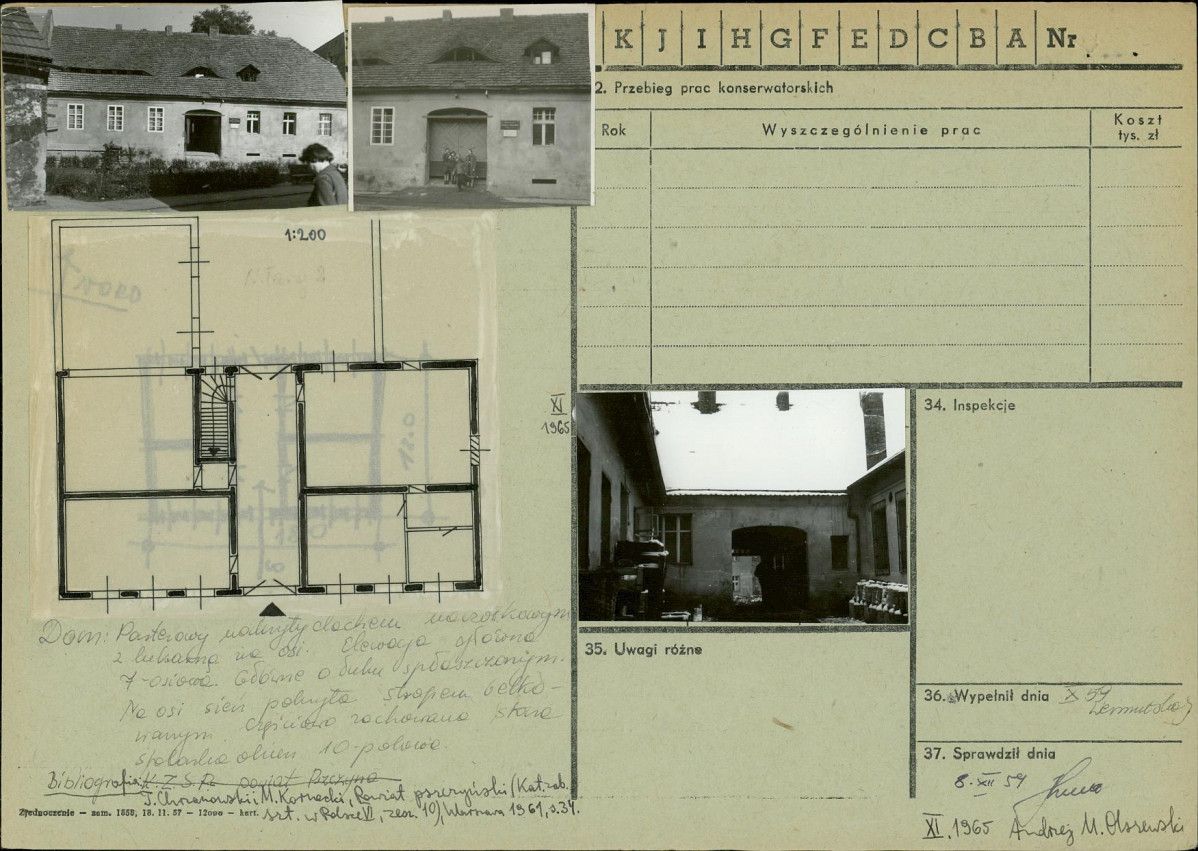 K J I H G F E D C B A Nr
2. Przebieg prac konserwatorskich
Rok
Wyszczególnienie prac
Koszt
tys. zł
1:200
NORD
18.0
XI
1965
34. Inspekcje
Dom: Parterowy nakryty dachem naczółkowym
z lukarną na osi. Elewacja główna
7-osiowa. Główne o łuku spłaszczonym.
Na osi sień pokryta stropem belko-
wanym. Częściowo zachowana stara
stolarka okien 10-polowa.
Bibliografia: K.Z.S.P. powiat Pszczyna
J. Chrzanowski, M. Kornecki, Powiat pszczyński (Kat. zab.
szt. w Polsce VI, zesz. 10), Warszawa 1961, s. 34.
Zjednoczenie — zam. 1659, 18. 11. 57 — 12000 — kart.
35. Uwagi różne
36. Wypełnił dnia X 59
37. Sprawdził dnia
8-XII 59
XI. 1965 Andrzej M. Olszewski